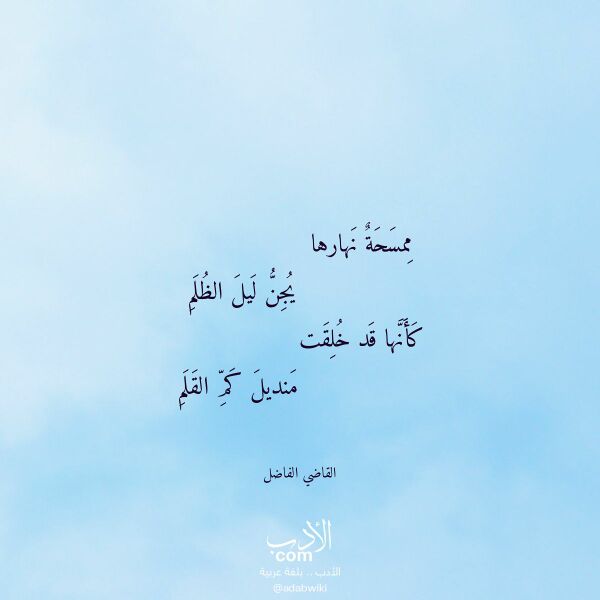 مِمسَحَةٌ نَهارها
يُجِنُّ لَيلَ الظُلَمِ
كَأَنَّها قَد خُلِقَت
مَنديلَ كَمِّ القَلَمِ
القاضي الفاضل
الأدب
.com
الأدب .. بلغة عربية
@adabwiki